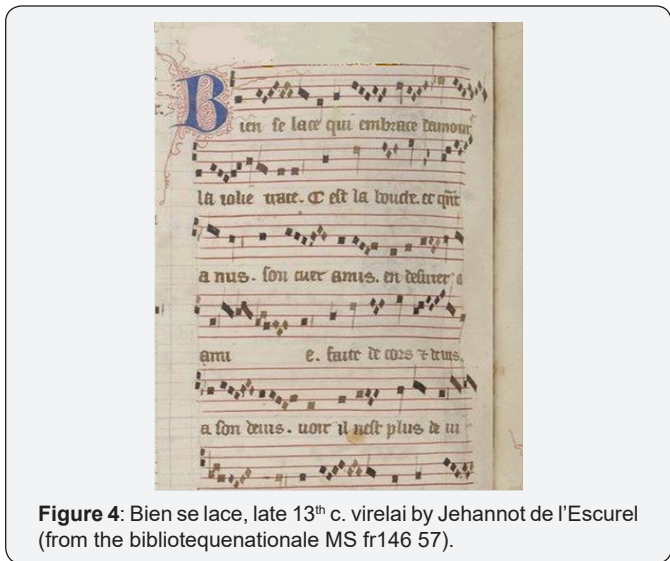 Bien se lace qui embrace damour
la iolie trace. C est la douche. et qñt
a nus. son cuer amis. en desirrer a
ami e. faite de cors & deuis.
a son deuis. uoir il nest plus de ui
Figure 4: Bien se lace, late 13th c. virelai by Jehannot de l’Escurel
(from the bibliotequenationale MS fr146 57).